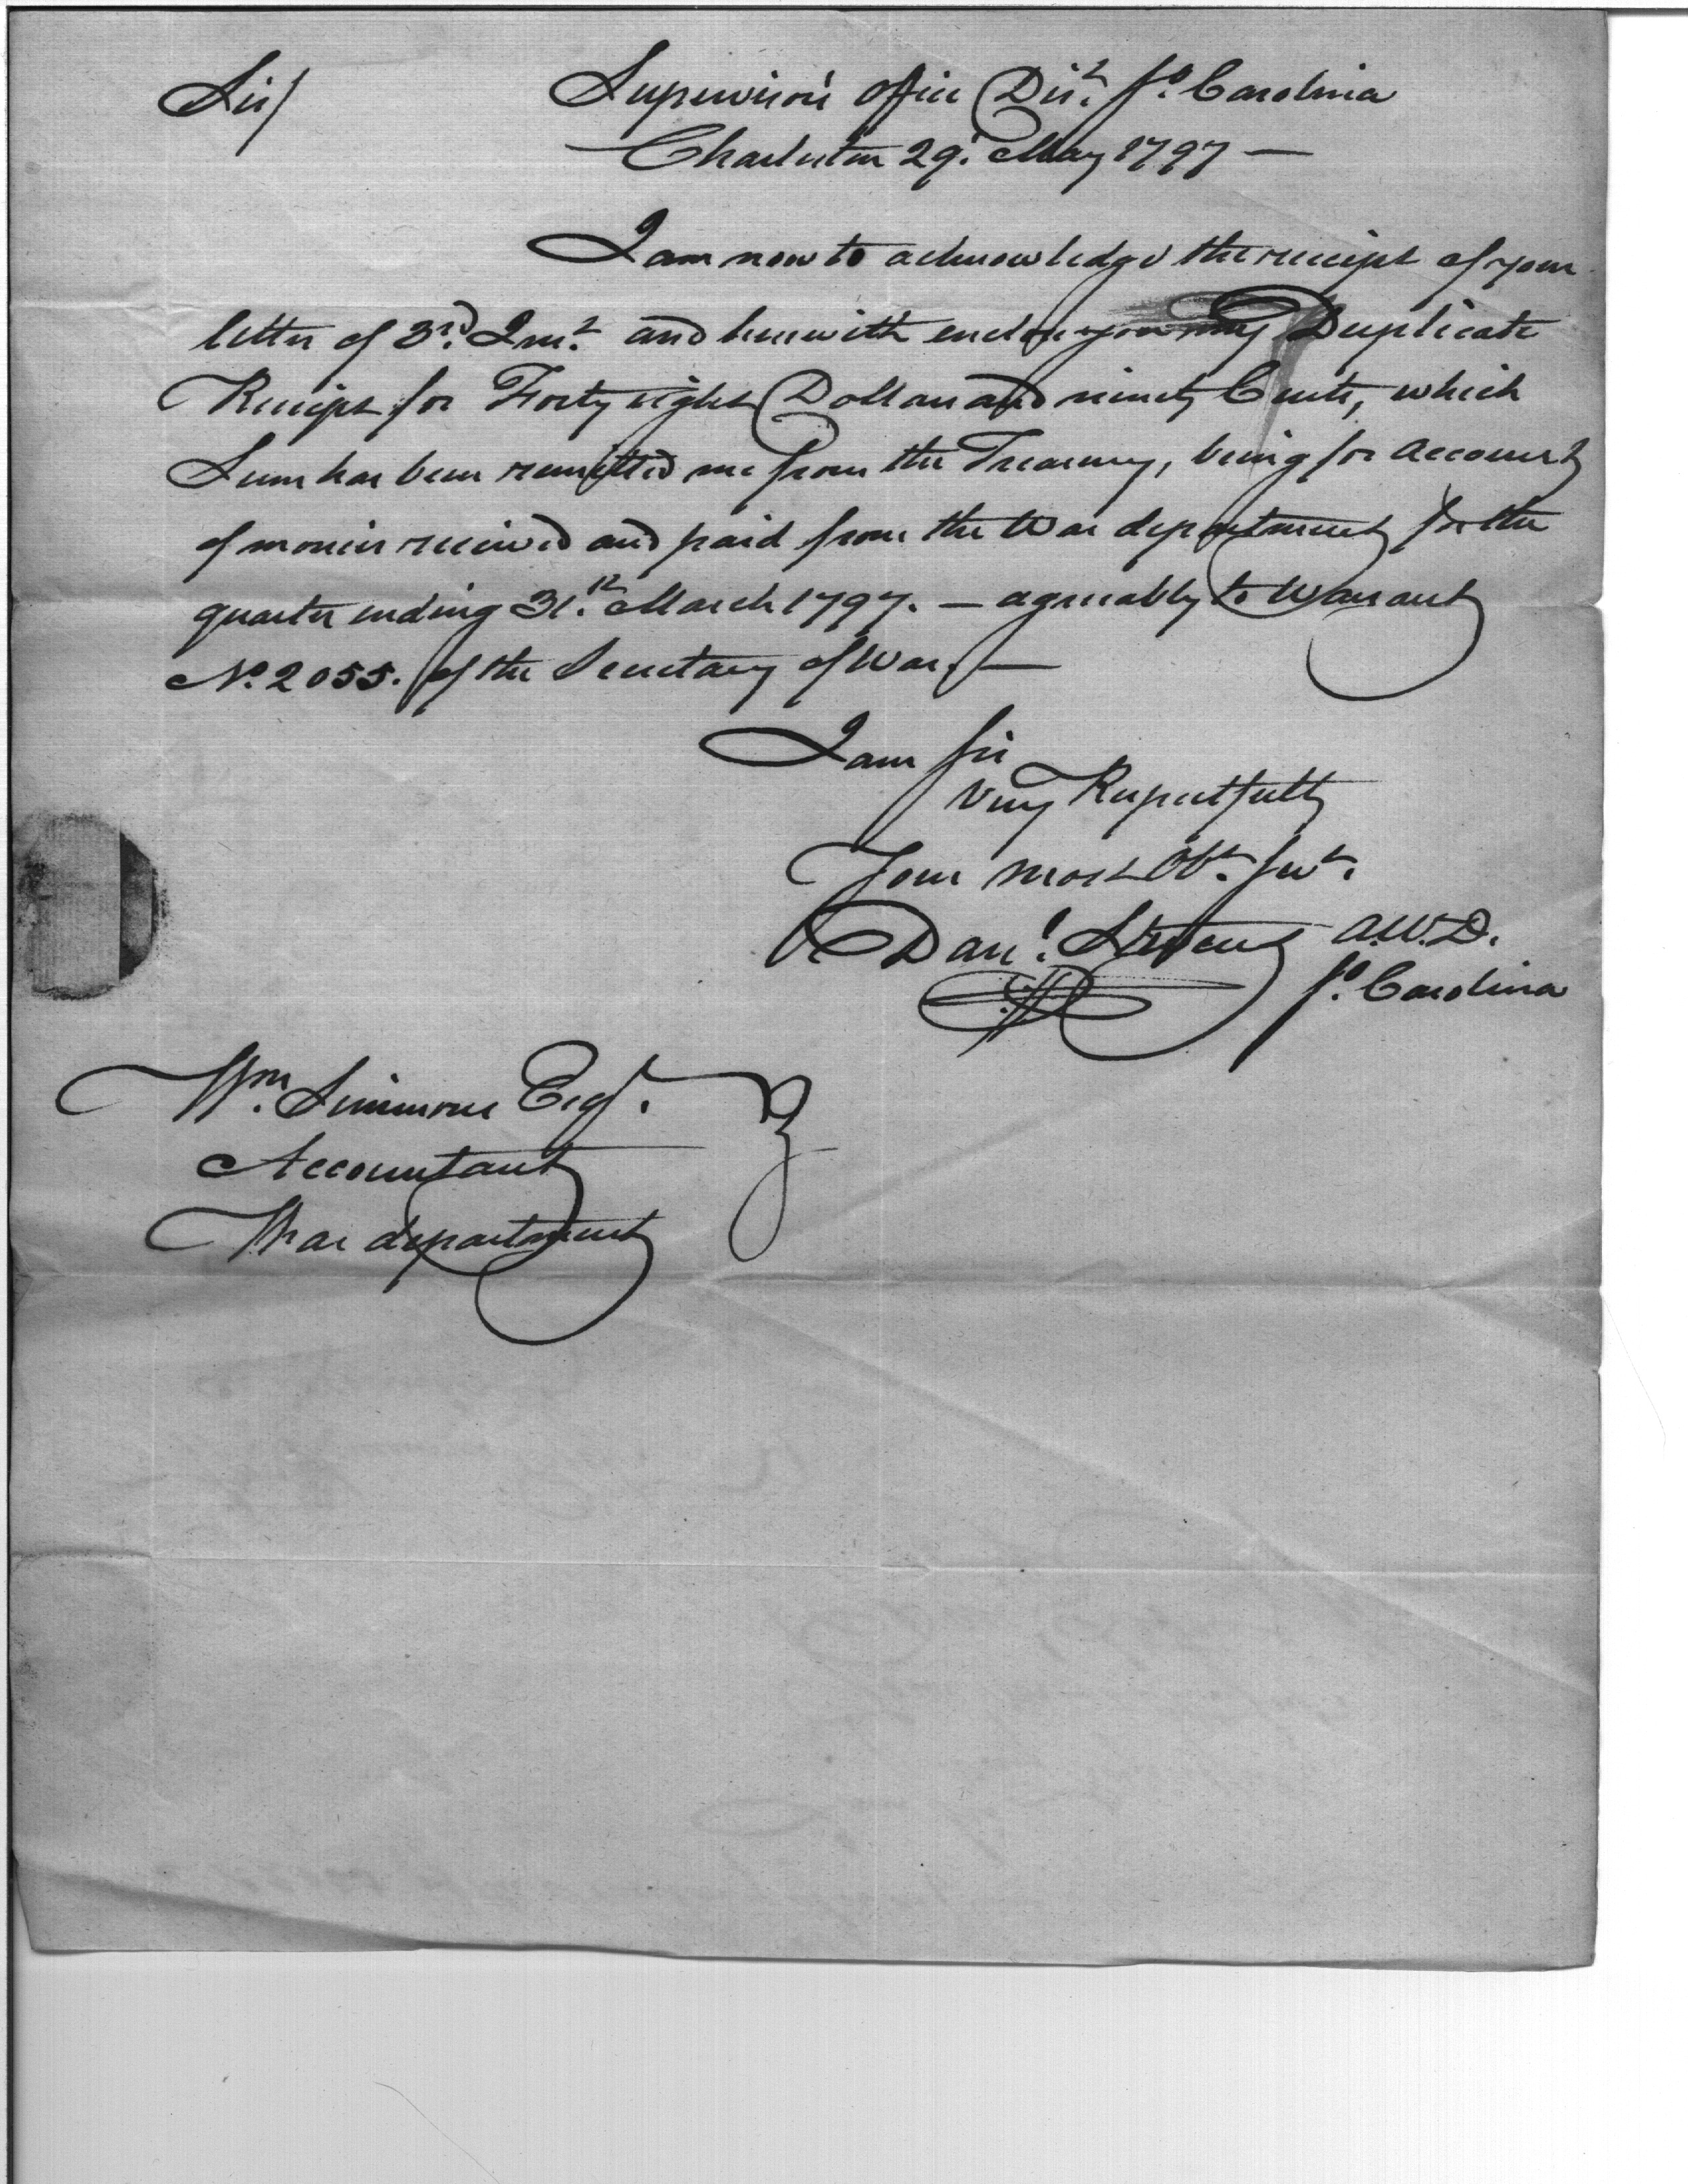 Sir/
Supervisor's Office Dist. So. Carolina
Charleston 29. May 1797 —
I am now to acknowledge the receipt of your
letter of 3rd. Inst. and herewith enclose you my Duplicate
Receipt for Forty eight Dollars and ninety Cents, which
Sum has been remitted me from the Treasury, being for account
of monies received and paid from the War department for the
quarter ending 31.st March 1797. — agreeably to Warrant
No. 2055. of the Secretary of War. —
I am Sir
Very Respectfully
Your most Obt. Servt.
Danl. Stevens A.W.D.
So. Carolina
Wm. Simmons Esqr.
Accountant
War department